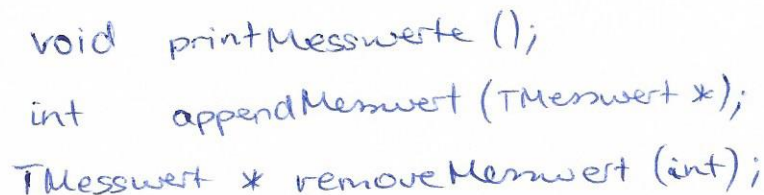 void printMesswerte ();
int appendMesswert (TMesswert *);
TMesswert * removeMesswert (int);